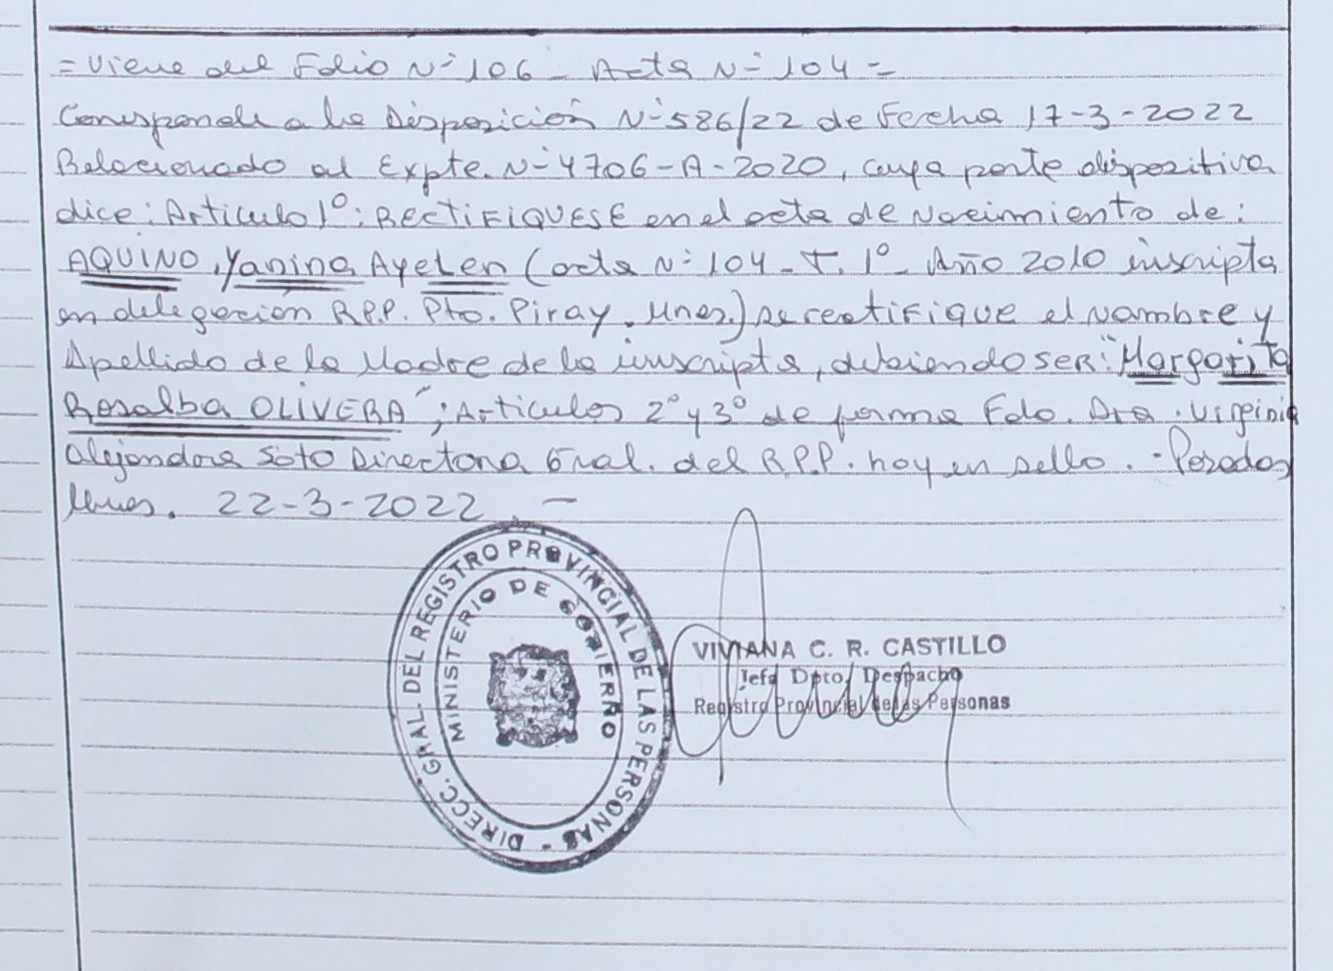 = Viene del Folio Nº 106 - Acta Nº 104 =
Corresponde a la Disposición Nº 586/22 de Fecha 17-3-2022
Relacionado al Expte. Nº 4706-A-2020, cuya parte dispositiva
dice: Artículo 1º: RECTIFIQUESE en el acta de Nacimiento de:
AQUINO, Yanina Ayelen (acta Nº 104 - T. 1º - Año 2010 inscripta
en delegación R.P.P. Pto. Piray. Mnes.) se rectifique el Nombre y
Apellido de la Madre de la inscripta, debiendo ser: "Margarita
Rosalba OLIVERA"; Artículos 2º y 3º de forma Fdo. Dra. Virginia
Alejandra Soto Directora Gral. del R.P.P. hay un sello. - Posadas
Mnes. 22-3-2022. -
DIRECC. GRAL. DEL REGISTRO PROVINCIAL DE LAS PERSONAS -
MINISTERIO DE GOBIERNO
VIVIANA C. R. CASTILLO
Jefa Dpto. Despacho
Registro Provincial de las Personas